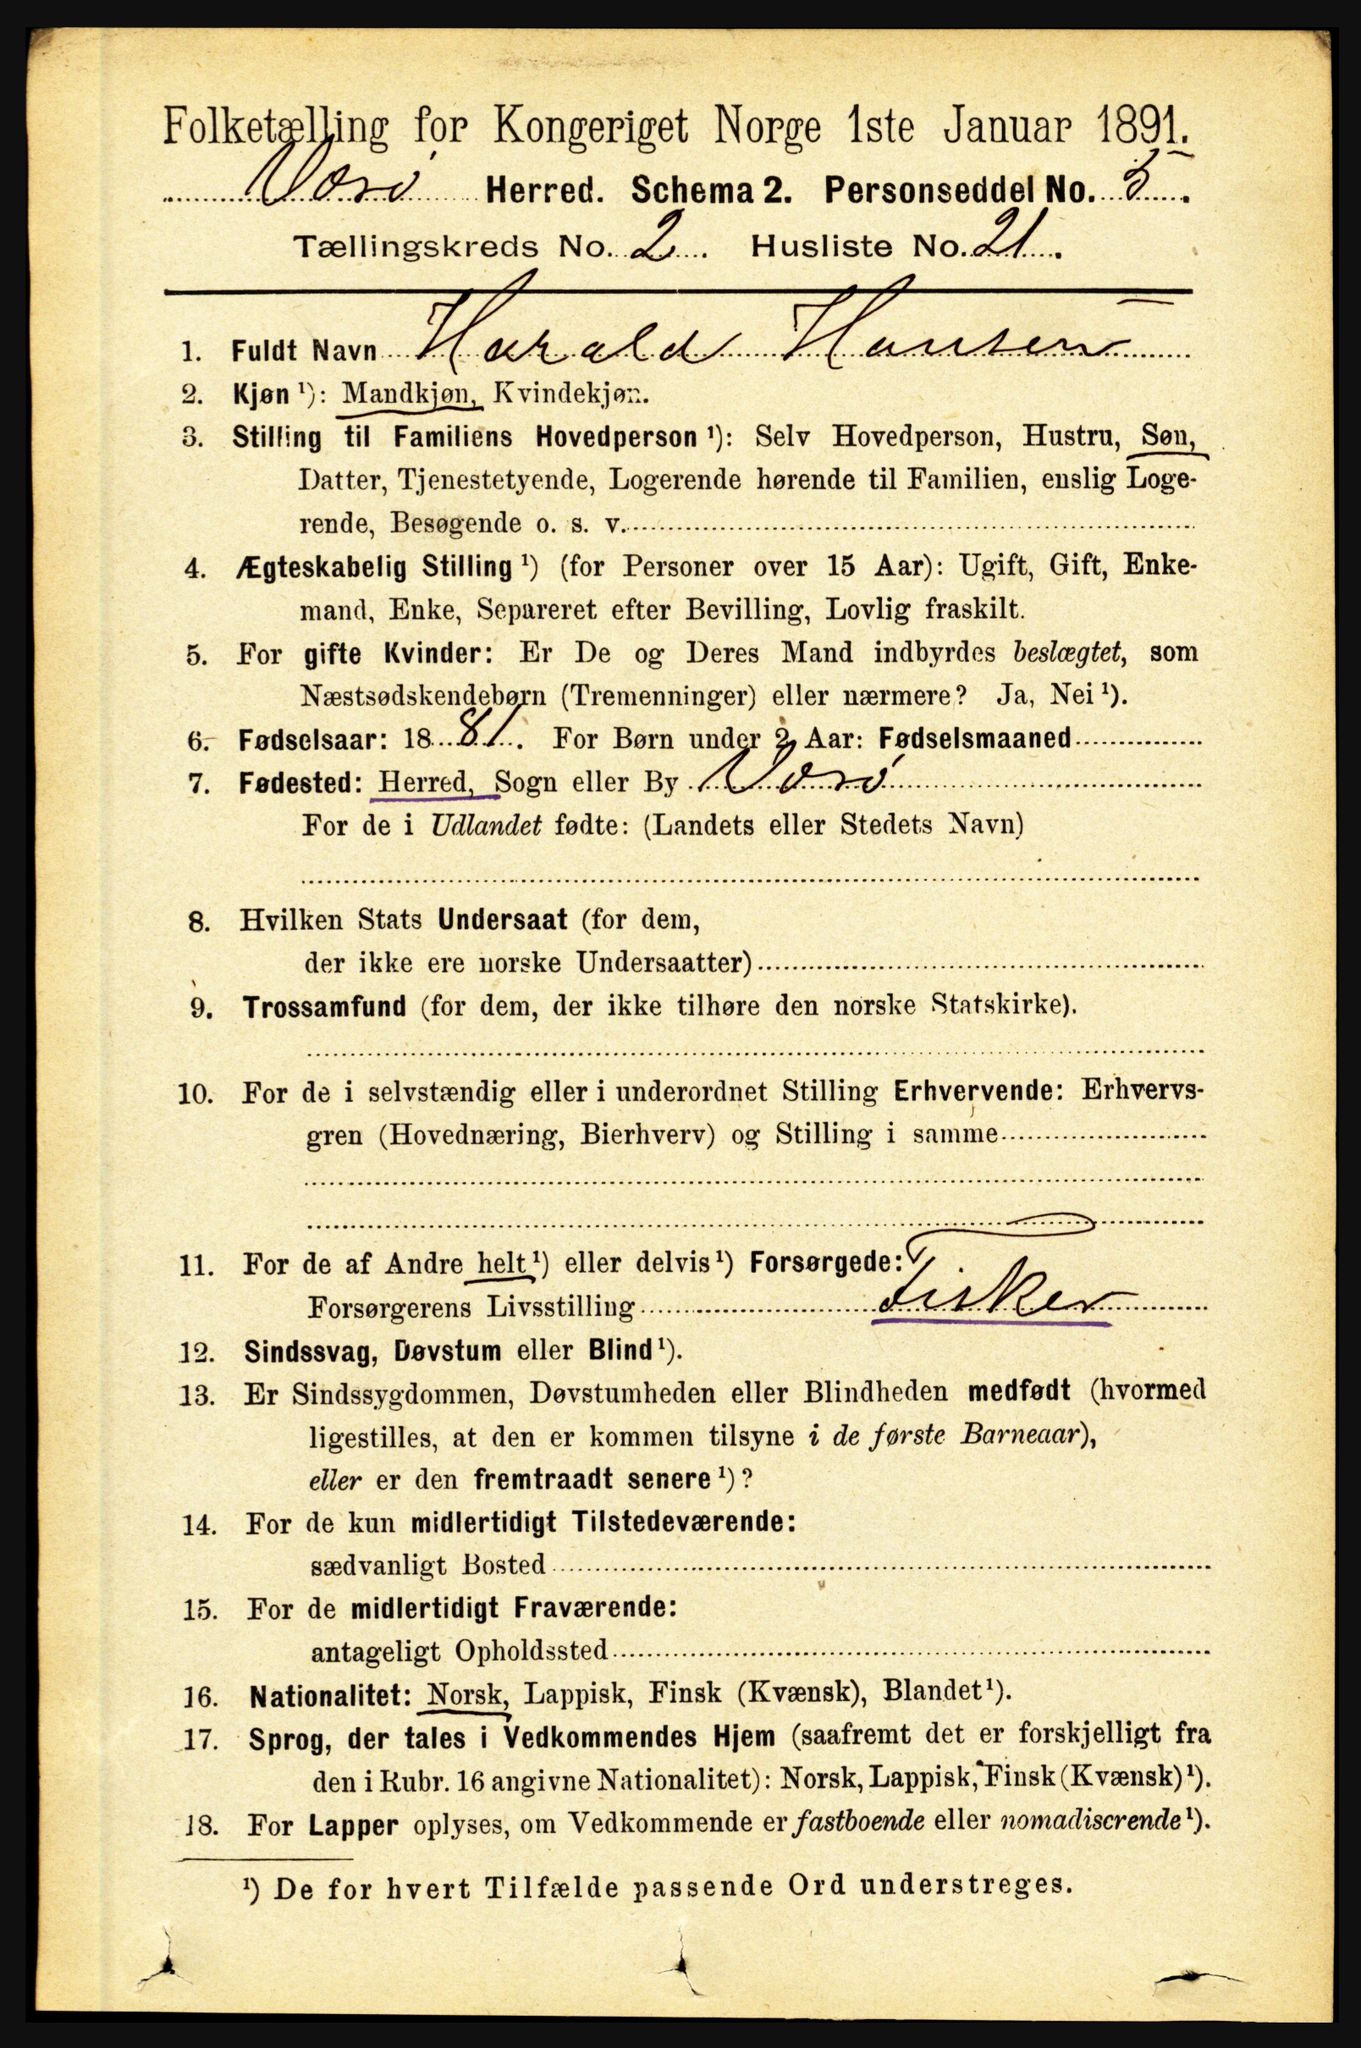 Folketælling for Kongeriget Norge 1ste Januar 1891.
Værø Herred. Schema 2. Personseddel No. 5.
Tællingskreds No. 2. Husliste No. 21.
1. Fuldt Navn Harald Hansen
2. Kjøn ¹): Mandkjøn, Kvindekjøn.
3. Stilling til Familiens Hovedperson ¹): Selv Hovedperson, Hustru, Søn,
Datter, Tjenestetyende, Logerende hørende til Familien, enslig Loge-
rende, Besøgende o. s. v.
4. Ægteskabelig Stilling ¹) (for Personer over 15 Aar): Ugift, Gift, Enke-
mand, Enke, Separeret efter Bevilling, Lovlig fraskilt.
5. For gifte Kvinder: Er De og Deres Mand indbyrdes beslægtet, som
Næstsødskendebørn (Tremenninger) eller nærmere? Ja, Nei ¹).
6. Fødselsaar: 1881. For Børn under 2 Aar: Fødselsmaaned
7. Fødested: Herred, Sogn eller By Værø
For de i Udlandet fødte: (Landets eller Stedets Navn)
8. Hvilken Stats Undersaat (for dem,
der ikke ere norske Undersaatter)
9. Trossamfund (for dem, der ikke tilhøre den norske Statskirke).
10. For de i selvstændig eller i underordnet Stilling Erhvervende: Erhvervs-
gren (Hovednæring, Bierhverv) og Stilling i samme
11. For de af Andre helt ¹) eller delvis ¹) Forsørgede:
Forsørgerens Livsstilling Fisker
12. Sindssvag, Døvstum eller Blind ¹).
13. Er Sindssygdommen, Døvstumheden eller Blindheden medfødt (hvormed
ligestilles, at den er kommen tilsyne i de første Barneaar),
eller er den fremtraadt senere ¹)?
14. For de kun midlertidigt Tilstedeværende:
sædvanligt Bosted
15. For de midlertidigt Fraværende:
antageligt Opholdssted
16. Nationalitet: Norsk, Lappisk, Finsk (Kvænsk), Blandet ¹).
17. Sprog, der tales i Vedkommendes Hjem (saafremt det er forskjelligt fra
den i Rubr. 16 angivne Nationalitet): Norsk, Lappisk, Finsk (Kvænsk) ¹).
18. For Lapper oplyses, om Vedkommende er fastboende eller nomadiserende ¹).
¹) De for hvert Tilfælde passende Ord understreges.